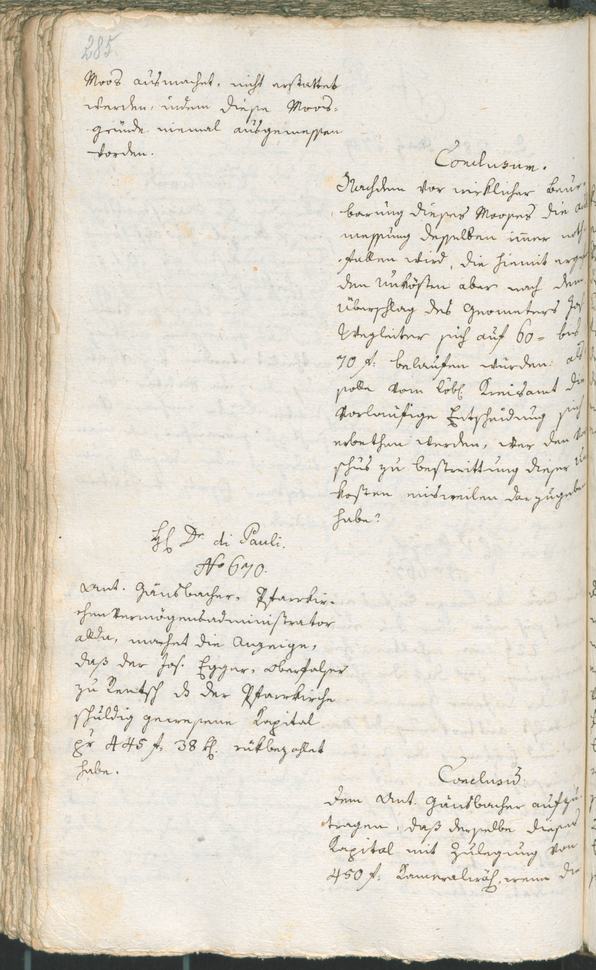 285.
Moos ausmachet, nicht erstattet
werden, indem diese Moos-
gründe niemal ausgemessen
worden.
Conclusum.
Nachdem vor wirklicher Beur-
barung dieses Mooses die aus
messung desselben immer noth
fallen wird, die hiemit erge
den Unkösten aber nach dem
Überschlag des Geometers Jos
Wegleiter sich auf 60- bis
70 f. belaufen würden: als
solle vom löbl Kreisamt die
vorläufige Entscheidung sich
erbethen werden, wer den Vor
schus zu bestreittung dieser Un
kosten einsweilen darzugeben
habe?
H Dr. di Pauli.
No 670.
Ant. Gänsbacher, Pfarrkir-
chenvermögensadministrator
allda, machet die Anzeige,
daß der Jos. Egger, Oberfalser
zu Rentsch ds der Pfarrkirche
schuldig gewesene Kapital
pr 445 f. 38 kr. rükbezahlet
habe.
Conclusum
dem Ant. Gänsbacher aufzu-
tragen, daß derselbe dieses
Kapital mit Zulegung von
450 f. wenn die